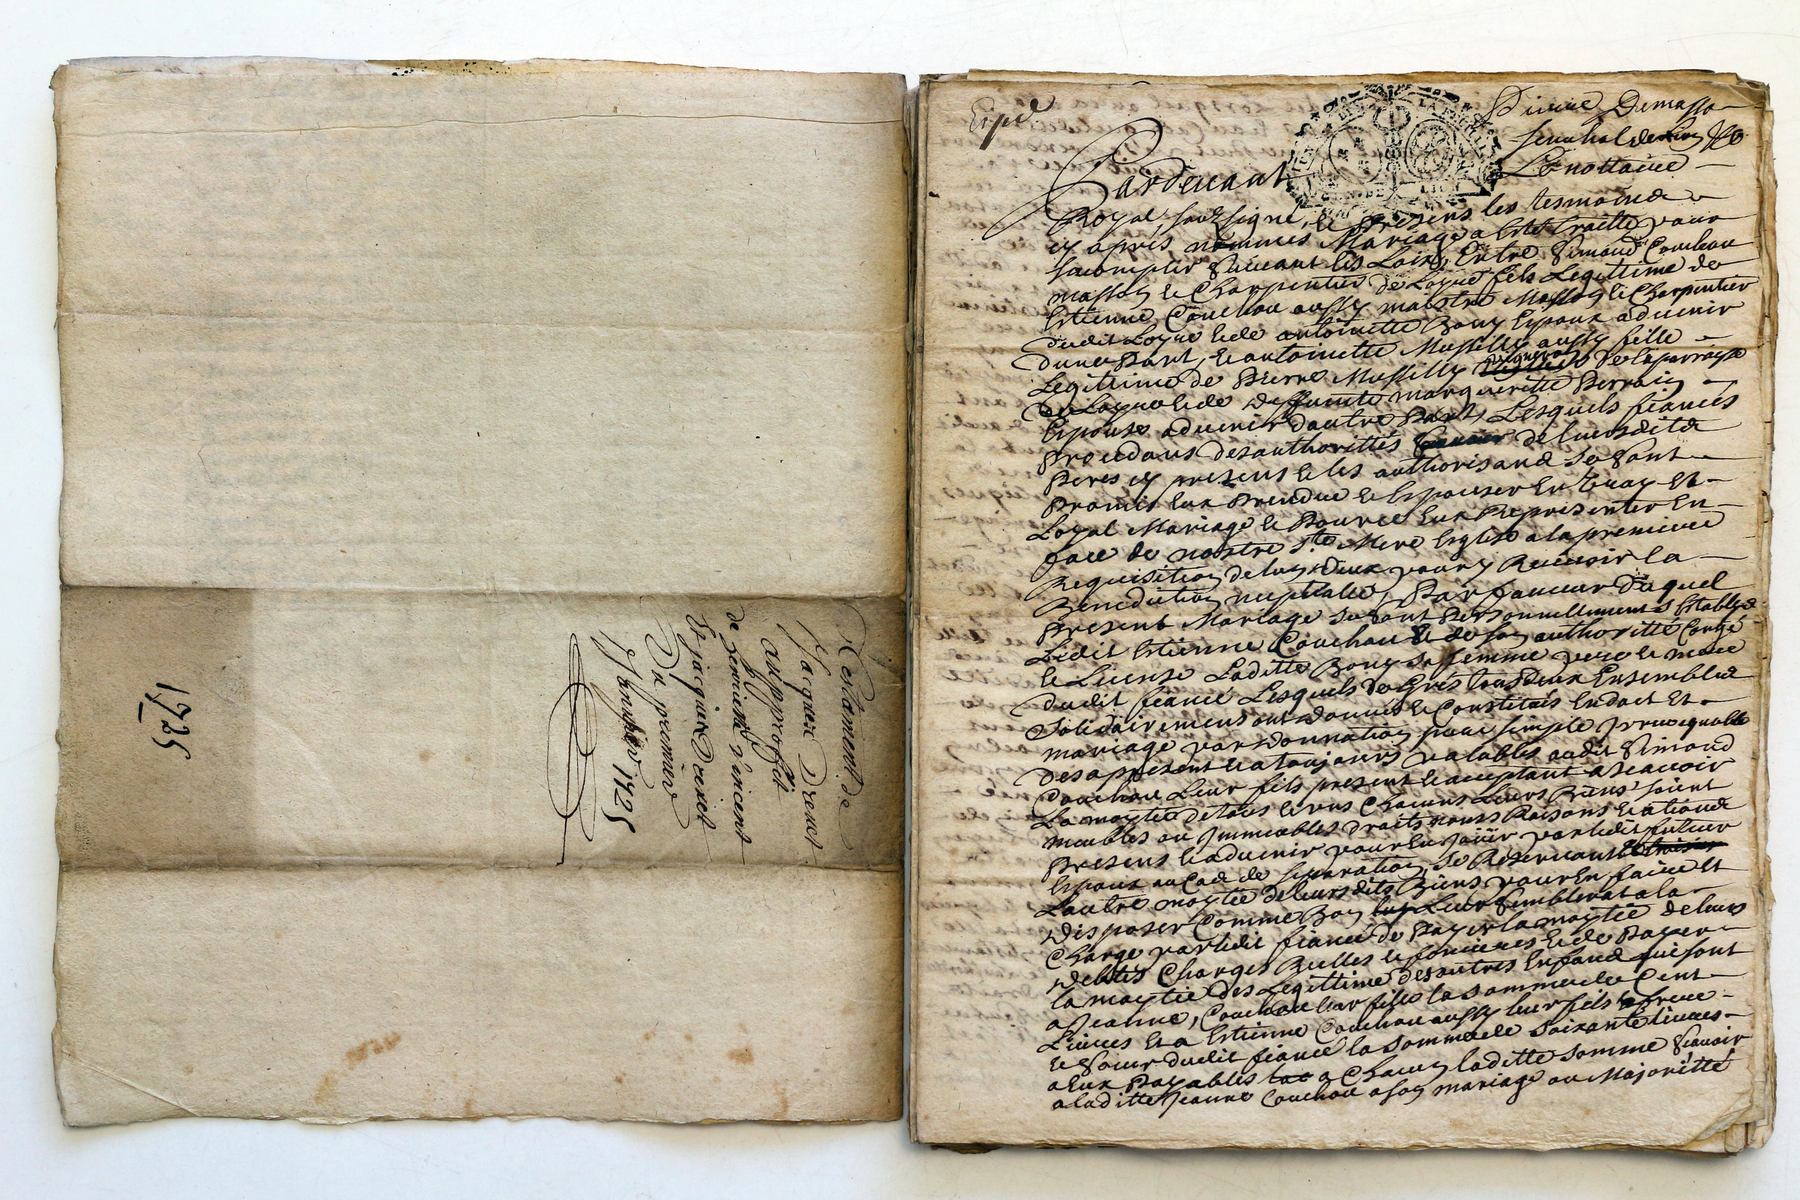 1725
Testament de
Jacques Drenet
au proffit
de Benoiste Vincent
et Jacques Drenet
Du premier
1725
Expd
Pardevant
Le nottaire
Royal soubsigné, et presens les tesmoins
cy après nommés Mariage a esté traitté pour
sacomplir suivant les Loix, Entre Simond Couchou
masson et Charpentier de Loyre fils Legittime de
Estienne Couchou aussy maistre Masson et Charpentier
dudit Loyre et de antoinette Bouy Espoux advenir
dune part, et antoinette Massilly aussy fille
Legittime de Pierre Massilly de la parroisse
de Loyre et de deffunte margueritte Perrain
Espouse advenir dautre Part, Lesquels fiancés
procedans des authorittés de leursdits
Peres cy presens et les authorisans se sont
Promis Eux Prendre et Espouser En vray Et
Loyal Mariage et Pource Eux Representer En
face de nostre Ste Mere Esglise a la premiere
Requisition de lun deux pour y Recevoir la
Benediction nuptialle, Par faveur Duquel
Present Mariage se sont Personnellement Establys
Ledit Estienne Couchou et de son authoritté Congé
et License Laditte Bouy sa femme pere et mere
dudit fiancé Lesquels de Grés tous deux Ensemble
Solidairement ont donné et Constitué En dot Et
mariage par donnation pure simple irrevocquable
des appresent et a toujours valables audit Simond
Couchou Leur fils present et acceptant a scavoir
La moytié de tous et uns Chacuns Leurs Biens soient
meubles ou Immeubles droits noms Raisons et actions
Presens et advenir pour En jouir par ledit futur
Espoux au Cas de separation, se Reservant
Lautre moytié de leursdits Biens pour En faire et
disposer Comme Bon Leur semblera et a la
Charge par ledit fiancé de Payer la moytié de leurs
debtes Charges Reelles et foncieres et de Payer
la moytié des Legittimes des autres Enfans qui sont
a Jeanne, Couchou leur fille la somme de Cent
Livres Et a Estienne Couchou aussy leur fils frere
et Soeur dudit fiancé la somme de soixante livres
a Eux Payables a Chacun laditte somme scavoir
a laditte Jeanne Couchou a son mariage ou Majoritté